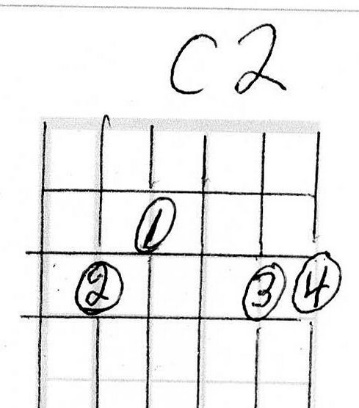 C2
1
2 3 4